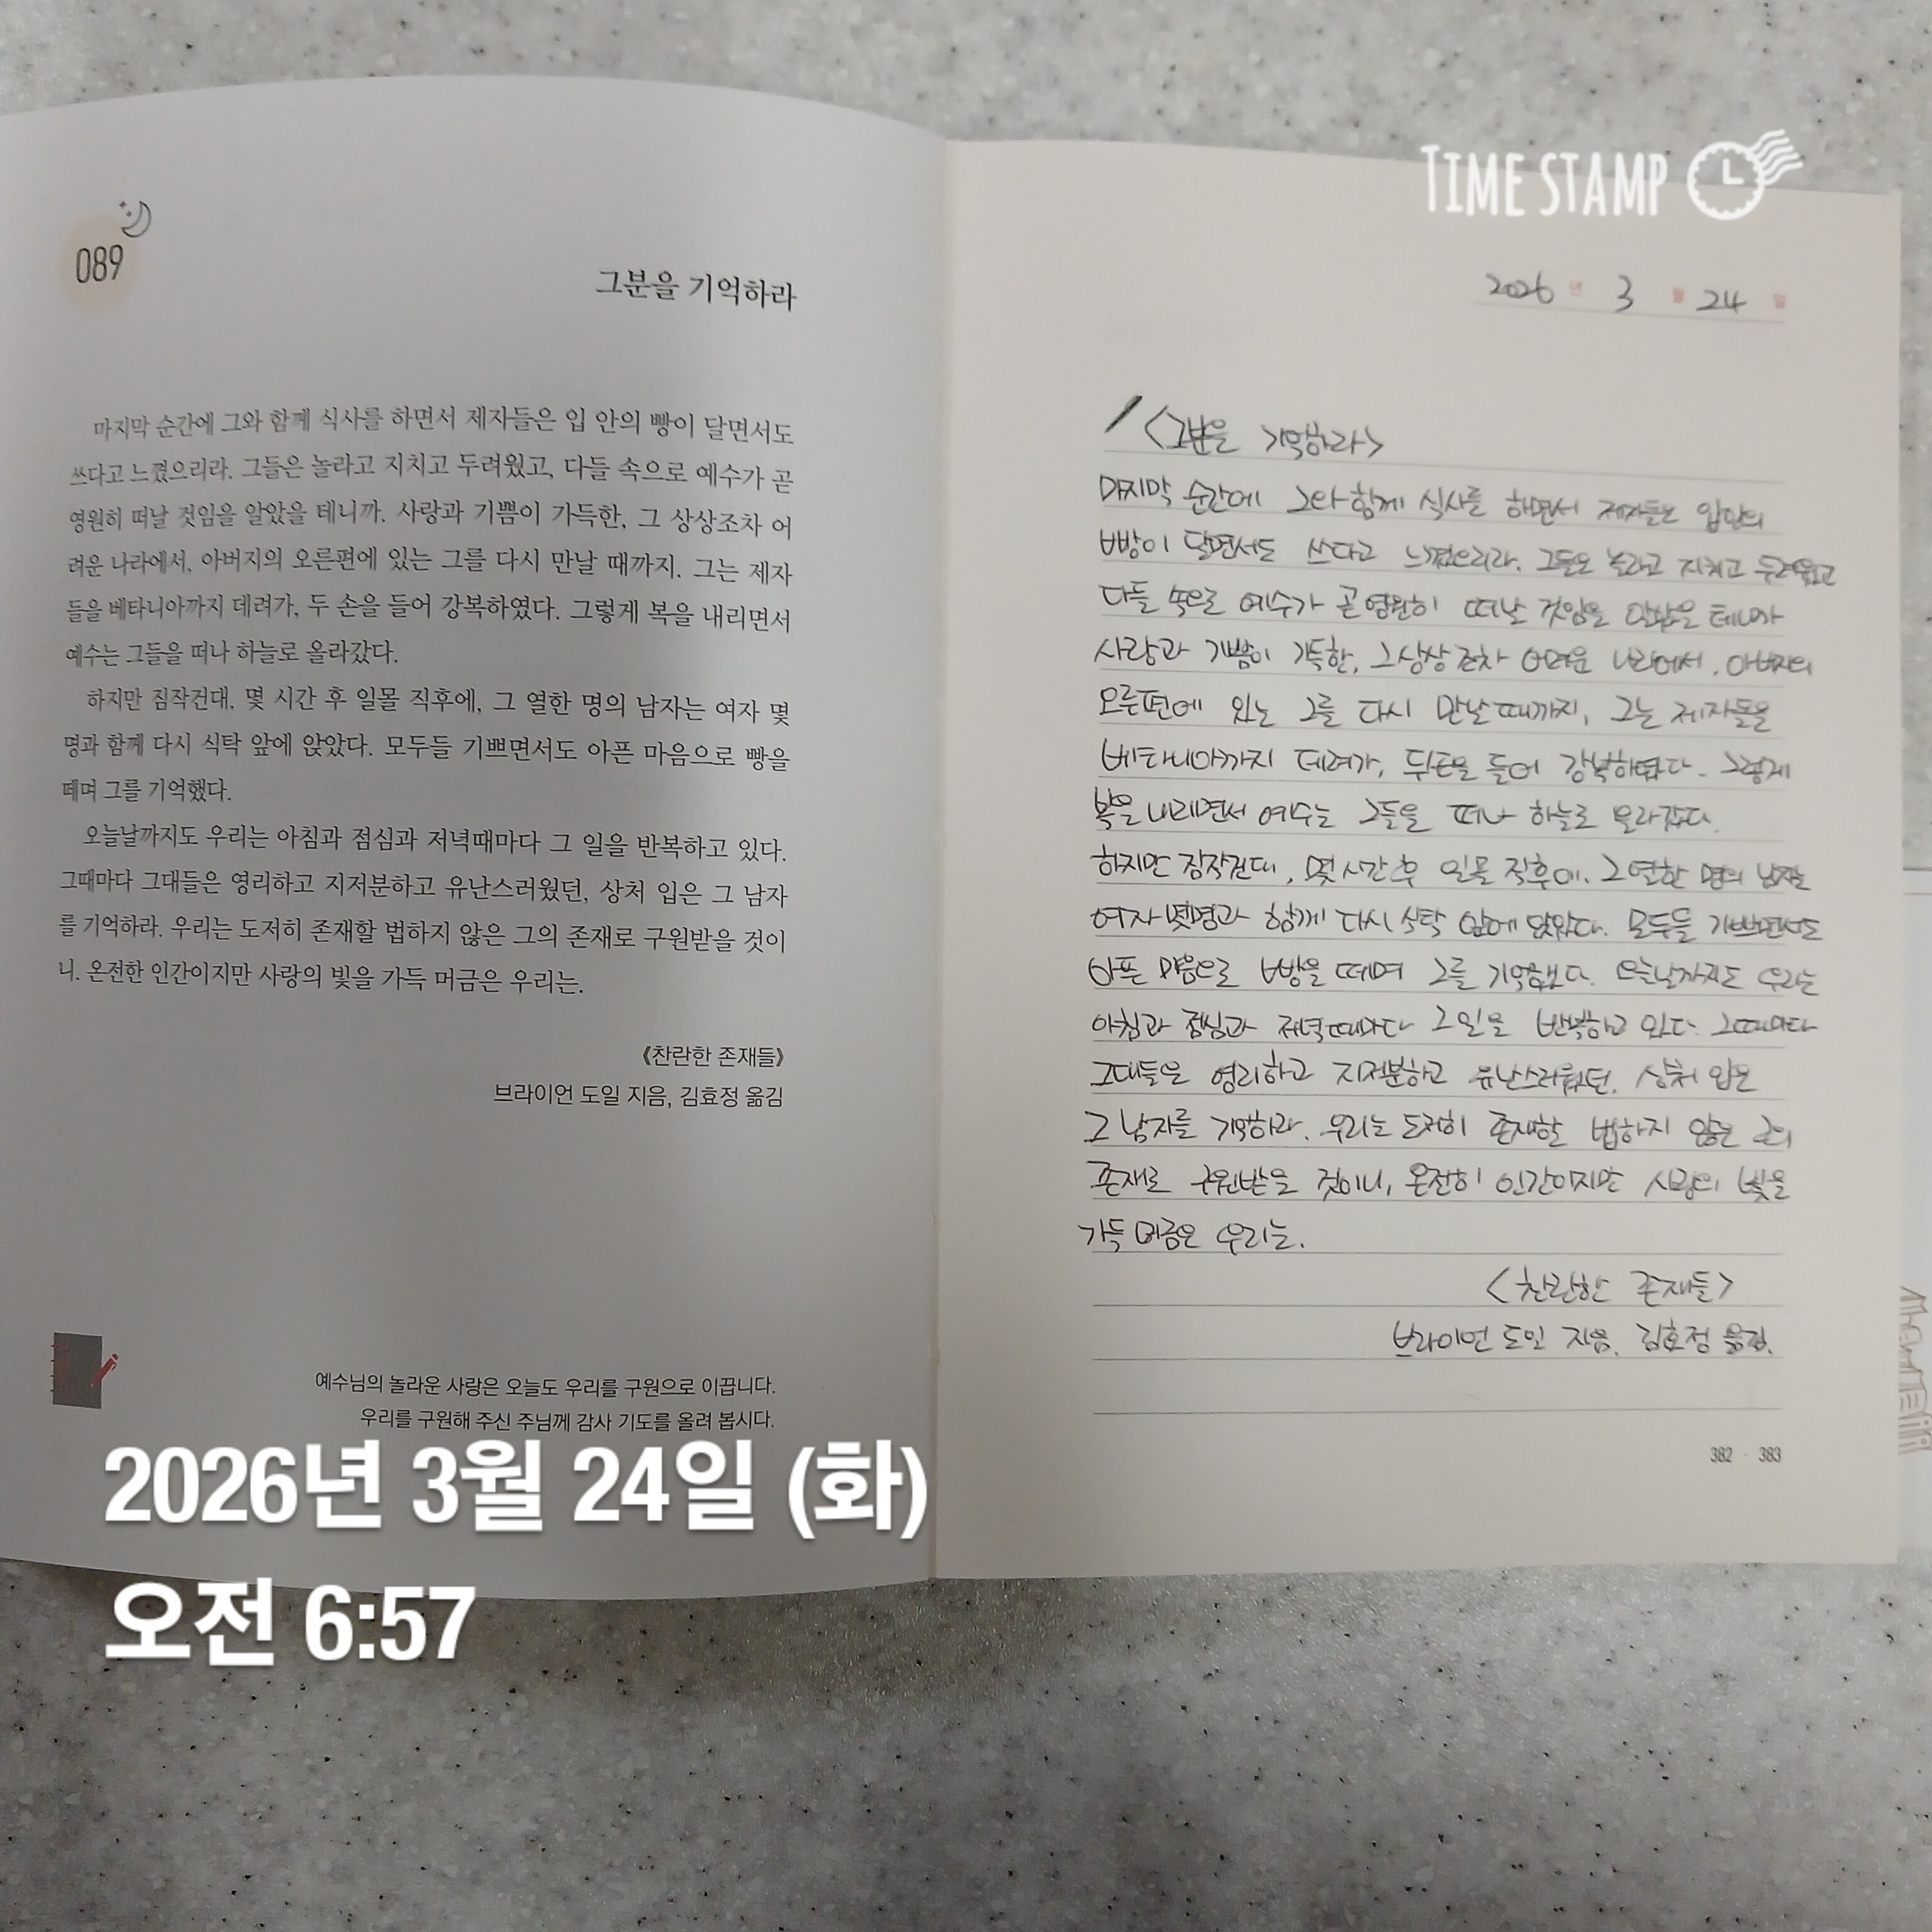 TIME STAMP
089
그분을 기억하라
마지막 순간에 그와 함께 식사를 하면서 제자들은 입 안의 빵이 달면서도
쓰다고 느꼈으리라. 그들은 놀라고 지치고 두려웠고, 다들 속으로 예수가 곧
영원히 떠날 것임을 알았을 테니까. 사랑과 기쁨이 가득한, 그 상상조차 어
려운 나라에서, 아버지의 오른편에 있는 그를 다시 만날 때까지. 그는 제자
들을 베타니아까지 데려가, 두 손을 들어 강복하였다. 그렇게 복을 내리면서
예수는 그들을 떠나 하늘로 올라갔다.
하지만 짐작건대, 몇 시간 후 일몰 직후에, 그 열한 명의 남자는 여자 몇
명과 함께 다시 식탁 앞에 앉았다. 모두들 기쁘면서도 아픈 마음으로 빵을
떼며 그를 기억했다.
오늘날까지도 우리는 아침과 점심과 저녁때마다 그 일을 반복하고 있다.
그때마다 그대들은 영리하고 지저분하고 유난스러웠던, 상처 입은 그 남자
를 기억하라. 우리는 도저히 존재할 법하지 않은 그의 존재로 구원받을 것이
니. 온전한 인간이지만 사랑의 빛을 가득 머금은 우리는.
《찬란한 존재들》
브라이언 도일 지음, 김효정 옮김
예수님의 놀라운 사랑은 오늘도 우리를 구원으로 이끕니다.
우리를 구원해 주신 주님께 감사 기도를 올려 봅시다.
2026년 3월 24일
<그분을 기억하라>
마지막 순간에 그와 함께 식사를 하면서 제자들은 입안의
빵이 달면서도 쓰다고 느꼈으리라. 그들은 놀라고 지치고 두려웠고
다들 속으로 예수가 곧 영원히 떠날 것임을 알았을 테니까
사랑과 기쁨이 가득한, 그 상상조차 어려운 나라에서, 아버지의
오른편에 있는 그를 다시 만날 때까지, 그는 제자들을
베타니아까지 데려가, 두손을 들어 강복하였다. 그렇게
복을 내리면서 예수는 그들을 떠나 하늘로 올라갔다.
하지만 짐작건대, 몇 시간 후 일몰 직후에. 그 열한 명의 남자는
여자 몇명과 함께 다시 식탁 앞에 앉았다. 모두들 기쁘면서도
아픈 마음으로 빵을 떼며 그를 기억했다. 오늘날까지도 우리는
아침과 점심과 저녁때마다 그 일을 반복하고 있다. 그때마다
그대들은 영리하고 지저분하고 유난스러웠던. 상처 입은
그 남자를 기억하라. 우리는 도저히 존재할 법하지 않은 그의
존재로 구원받을 것이니, 온전히 인간이지만 사랑의 빛을
가득 머금은 우리는.
<찬란한 존재들>
브라이언 도일 지음. 김효정 옮김.
382 - 383
2026년 3월 24일 (화)
오전 6:57